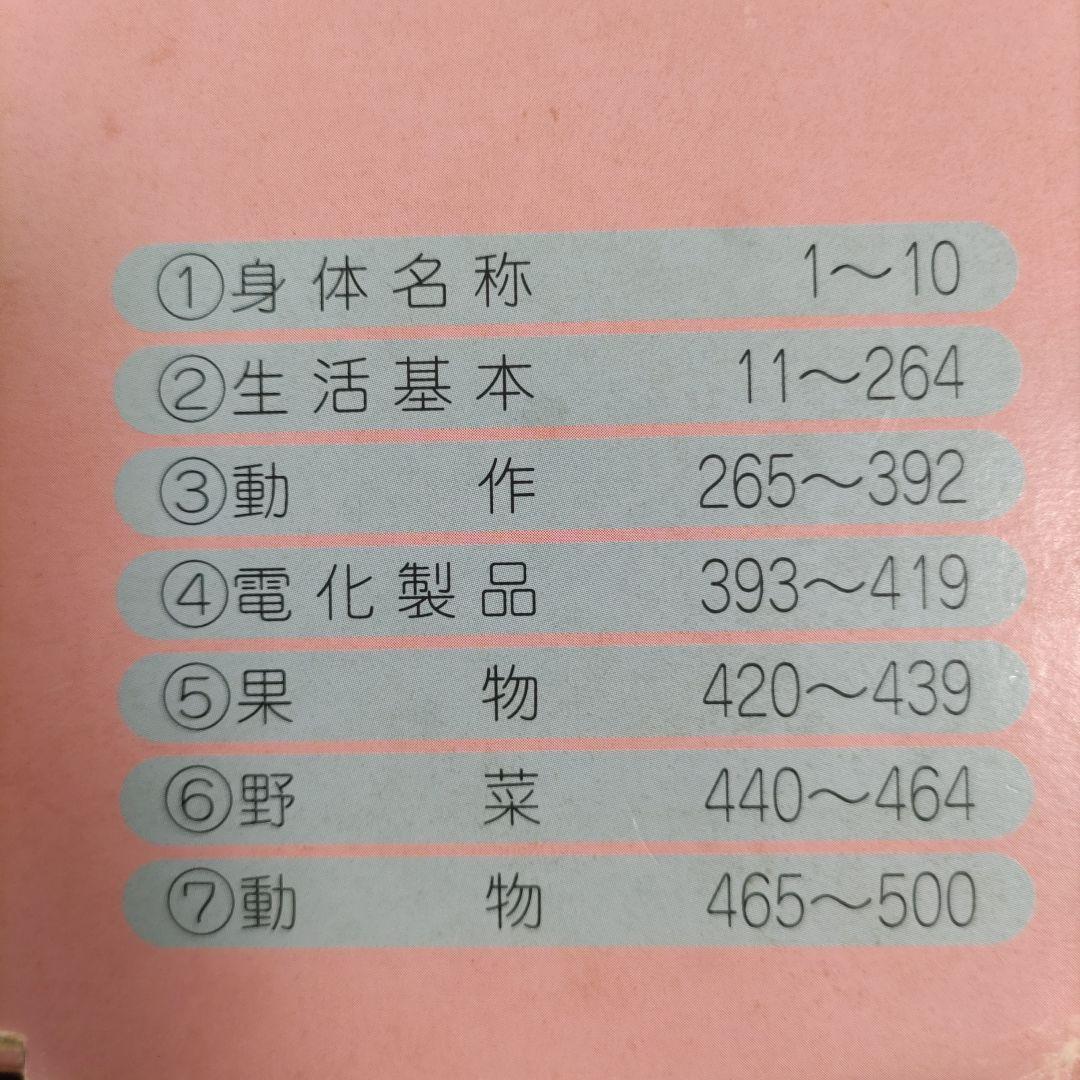 ①身体名称 1～10
②生活基本 11～264
③動作 265～392
④電化製品 393～419
⑤果物 420～439
⑥野菜 440～464
⑦動物 465～500